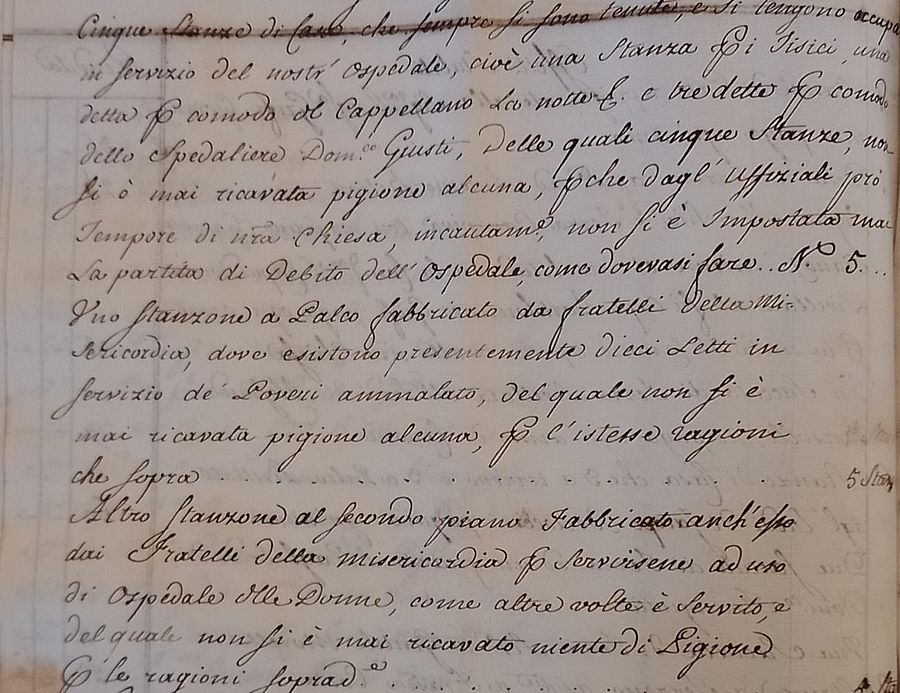 Cinque Stanze di Case, che sempre si sono tenute, e si tengono occupa
in servizio del nostr' Ospedale, cioè una Stanza P i Tisici, una
detta P comodo del Cappellano La notte E. e tre dette P comodo
dello Spedaliere Dom.co Giusti, delle quali cinque Stanze, non
si è mai ricavata pigione alcuna, Pche dagl' Uffiziali prò
Tempore di nrã Chiesa, incautam.e, non si è Impostata mai
La partita di Debito dell' Ospedale, come dovevasi fare .. N.º 5...
Uno stanzone a Palco fabbricato da fratelli Della Mi-
sericordia, dove esistono presentemente dieci Letti in
servizio de' Poveri ammalato, del quale non si è
mai ricavata pigione alcuna, P l'istesse ragioni
che sopra . . . . . . . . . . 5 Stan
Altro stanzone al secondo piano Fabbricato anch'esso
dai Fratelli della misericordia P servirsene ad uso
di Ospedale delle Donne, come altre volte è servito, e
del quale non si è mai ricavato niente di Pigione
P le ragioni soprad.e . . . . . . 5 Sta